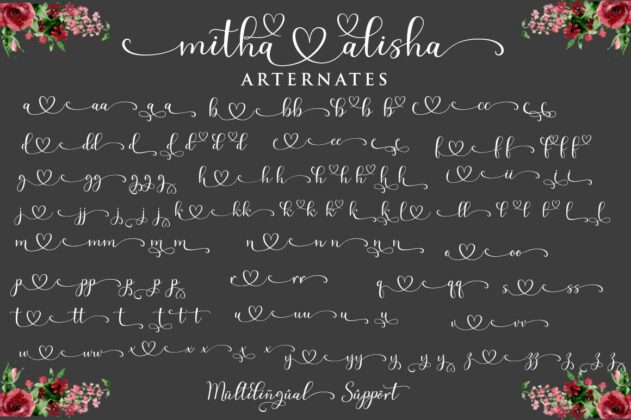 mitha alisha
ARTERNATES
a e aa a a b e bb b b b c e cc c c
d e dd d d d d d e e ee e f e ff f f f
g e gg g g g h e h h h h h h i e ii i
j e jj j j j k e kk k k k k k l e ll l l l l
m e mm m m n e n n n n o e oo
p e pp p p p r e rr q e qq s e ss
t e tt t t t t u e uu u u v e vv
w e ww x e x x x y e yy y y y z e zz z z z
Mültilingüal Süppört